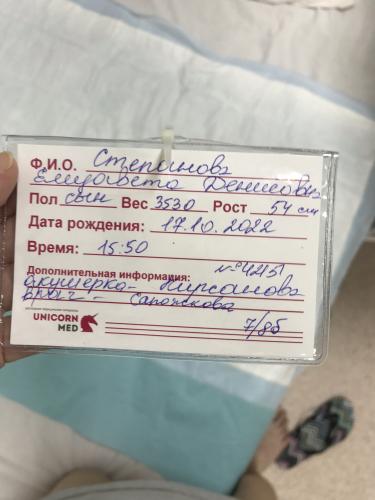 Ф.И.О. Степанова
Елизавета Денисовна
Пол сын Вес 3530 Рост 54 см
Дата рождения: 17.10.2022
Время: 15:50
Дополнительная информация: №4245
акушерка - Кирсанова
врач - Сапожкова
7/8б
UNICORN
MED